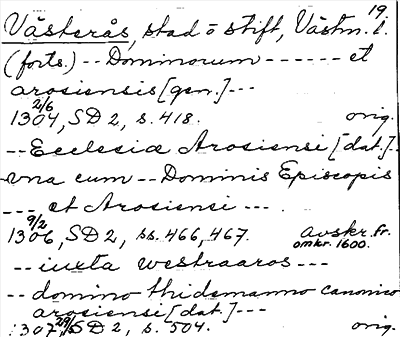 19
Västerås, stad o stift, Västm. l.
(forts.) -- Dominorum ------ et
arosiensis [gen.] ---
2/6
1304, SD 2, s. 418. orig.
-- Ecclesiæ Arosiensi [dat.] --
una cum -- Dominis Episcopis
--- et Arosiensi ---
9/2
1306, SD 2, ss. 466, 467. Avskr. fr.
omkr. 1600.
-- iuxta westraaros ---
-- domino thidemanno canonico
arosiensi [dat.] ---
1307, SD 2, s. 504. orig.